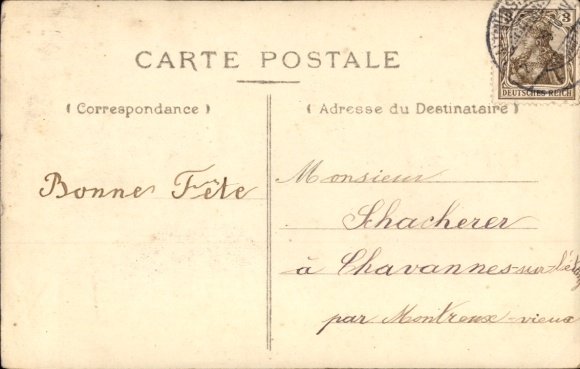 CARTE POSTALE
3 3
DEUTSCHES REICH
( Correspondance )
( Adresse du Destinataire )
Bonne Fête
Monsieur
Schacherer
à Chavannes-sur-l'ét
par Montreux-vieux